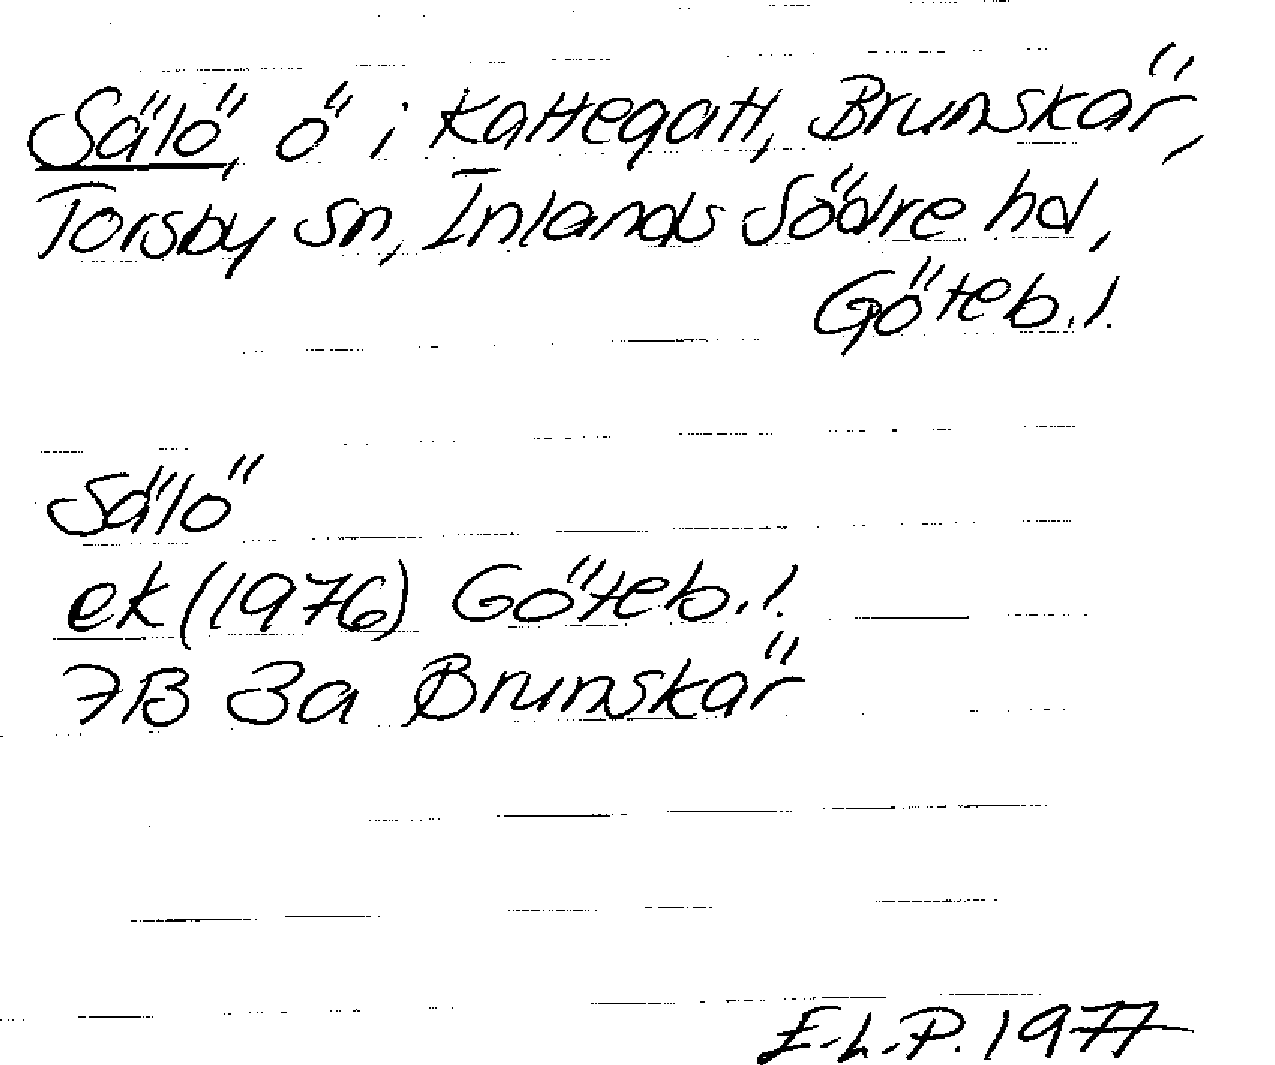 Sälö, ö i Kattegatt, Brunskär,
Torsby sn, Inlands Södre hd,
Göteb.l.
Sälö
ek (1976) Göteb.l.
7B 3a Brunskär
E.L.P. 1977